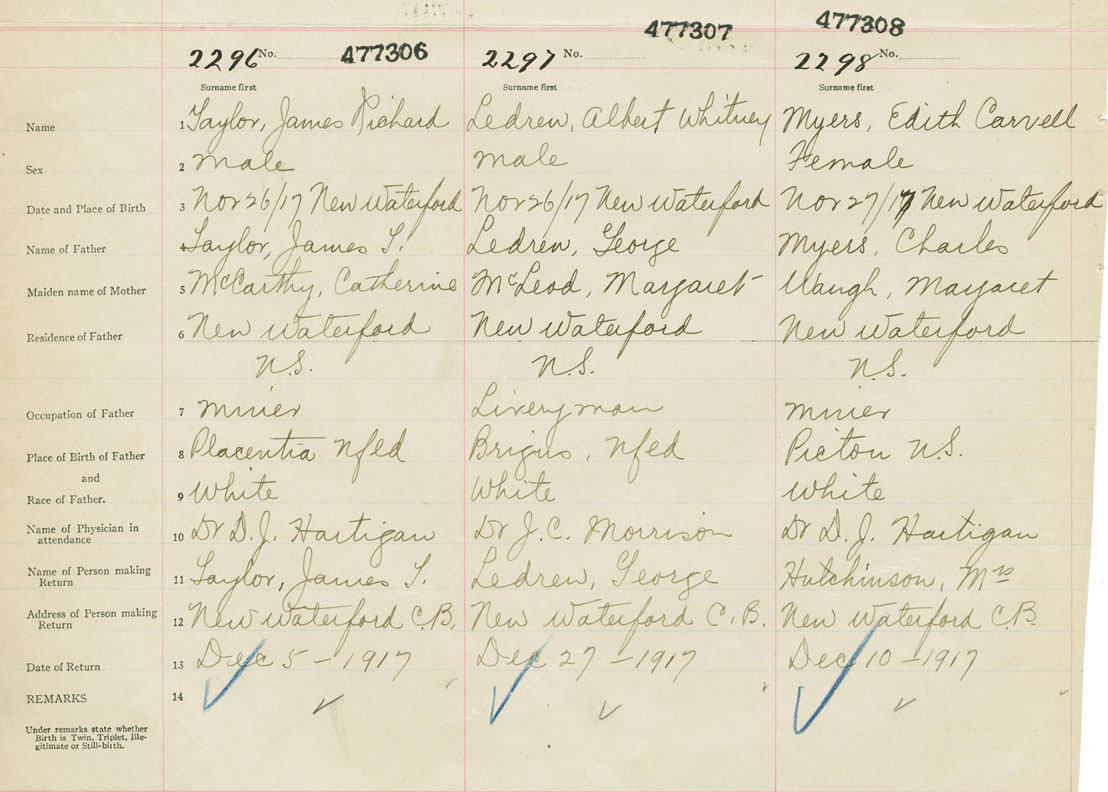 477306
477307
477308
2296 No.
2297 No.
2298 No.
Surname first
Surname first
Surname first
Name
1 Taylor, James Richard
Ledrew, Albert Whitney
Myers, Edith Carvell
Sex
2 male
male
Female
Date and Place of Birth
3 Nov 26/17 New Waterford
Nov 26/17 New Waterford
Nov 27/17 New Waterford
Name of Father
4 Taylor, James T.
Ledrew, George
Myers, Charles
Maiden name of Mother
5 McCarthy, Catherine
McLeod, Margaret
Waugh, Margaret
Residence of Father
6 New Waterford
New Waterford
New Waterford
N.S.
N.S.
N.S.
Occupation of Father
7 Miner
Liveryman
Miner
Place of Birth of Father
8 Placentia Nfld
Brigus, Nfld
Pictou N.S.
and
Race of Father.
9 White
White
White
Name of Physician in
attendance
10 Dr D. J. Hartigan
Dr J. C. Morrison
Dr D. J. Hartigan
Name of Person making
Return
11 Taylor, James T.
Ledrew, George
Hutchinson, Mrs
Address of Person making
Return
12 New Waterford C.B.
New Waterford C.B.
New Waterford C.B.
Date of Return
13 Dec 5 - 1917
Dec 27 - 1917
Dec 10 - 1917
REMARKS
14
Under remarks state whether
Birth is Twin, Triplet, Ille-
gitimate or Still-birth.